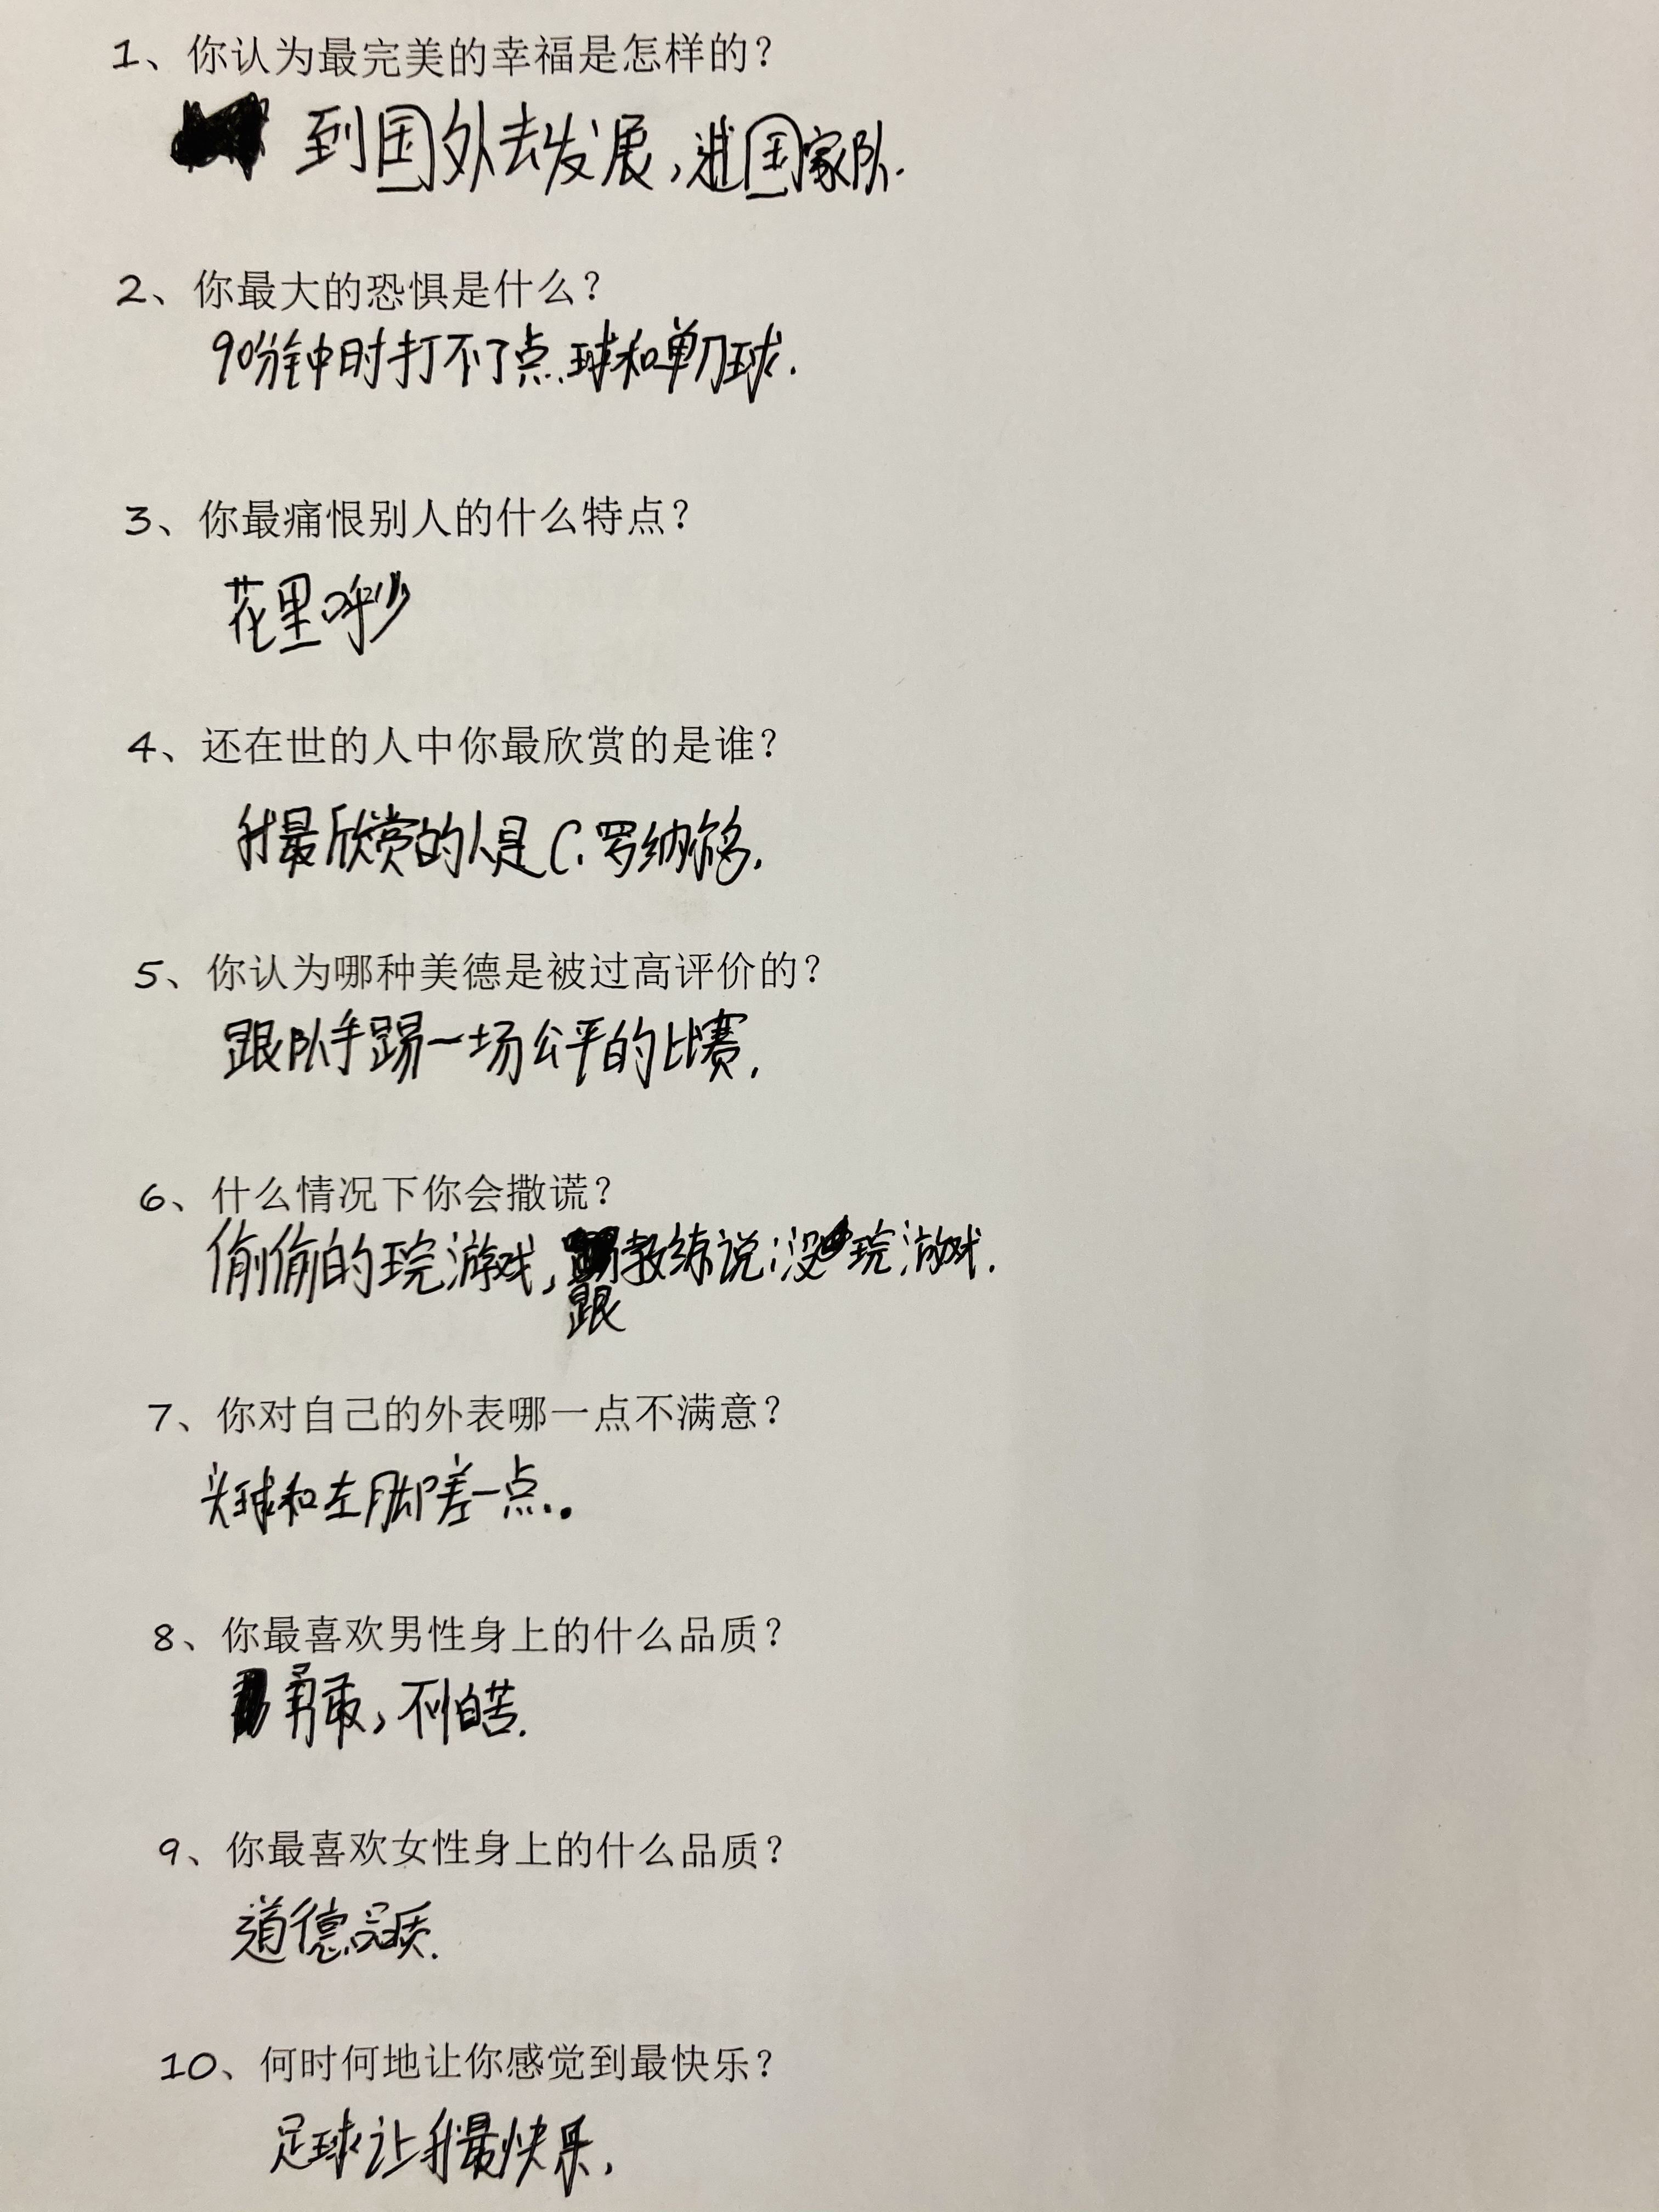 1、你认为最完美的幸福是怎样的？
到国外去发展，进国家队.
2、你最大的恐惧是什么？
90分钟时打不了点球和单刀球.
3、你最痛恨别人的什么特点？
花里呼哨
4、还在世的人中你最欣赏的是谁？
我最欣赏的人是C.罗纳尔多.
5、你认为哪种美德是被过高评价的？
跟队手踢一场公平的比赛.
6、什么情况下你会撒谎？
偷偷的玩游戏,跟教练说:没玩游戏.
7、你对自己的外表哪一点不满意？
头球和左脚差一点.
8、你最喜欢男性身上的什么品质？
勇敢,不怕苦.
9、你最喜欢女性身上的什么品质？
道德品质.
10、何时何地让你感觉到最快乐？
足球让我最快乐.